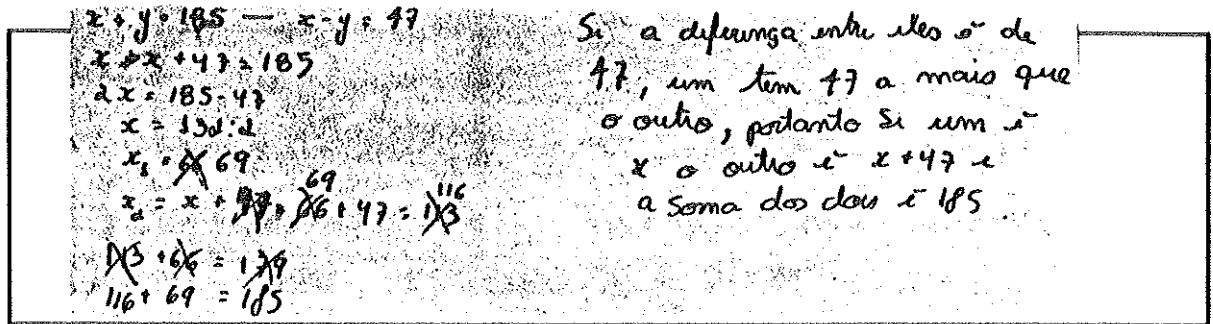 x + y = 185 — x - y = 47
x + x + 47 = 185
2x = 185 - 47
x = 132 : 2
x₁ = 66 69
x₂ = x + 47 = 66 69 + 47 = 113 116
113 + 66 = 179
116 + 69 = 185
Si a diferença entre eles é de
47, um tem 47 a mais que
o outro, portanto Si um é
x o outro é x + 47 e
a Soma dos dois é 185